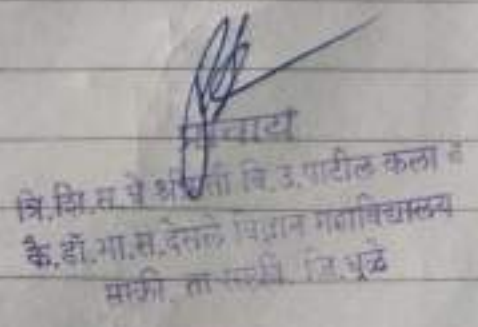 प्राचार्य
वि. उ. पाटील कला व
कै. डॉ. भा. स. देसले विज्ञान महाविद्यालय
साक्री, ता. साक्री, जि. धुळे